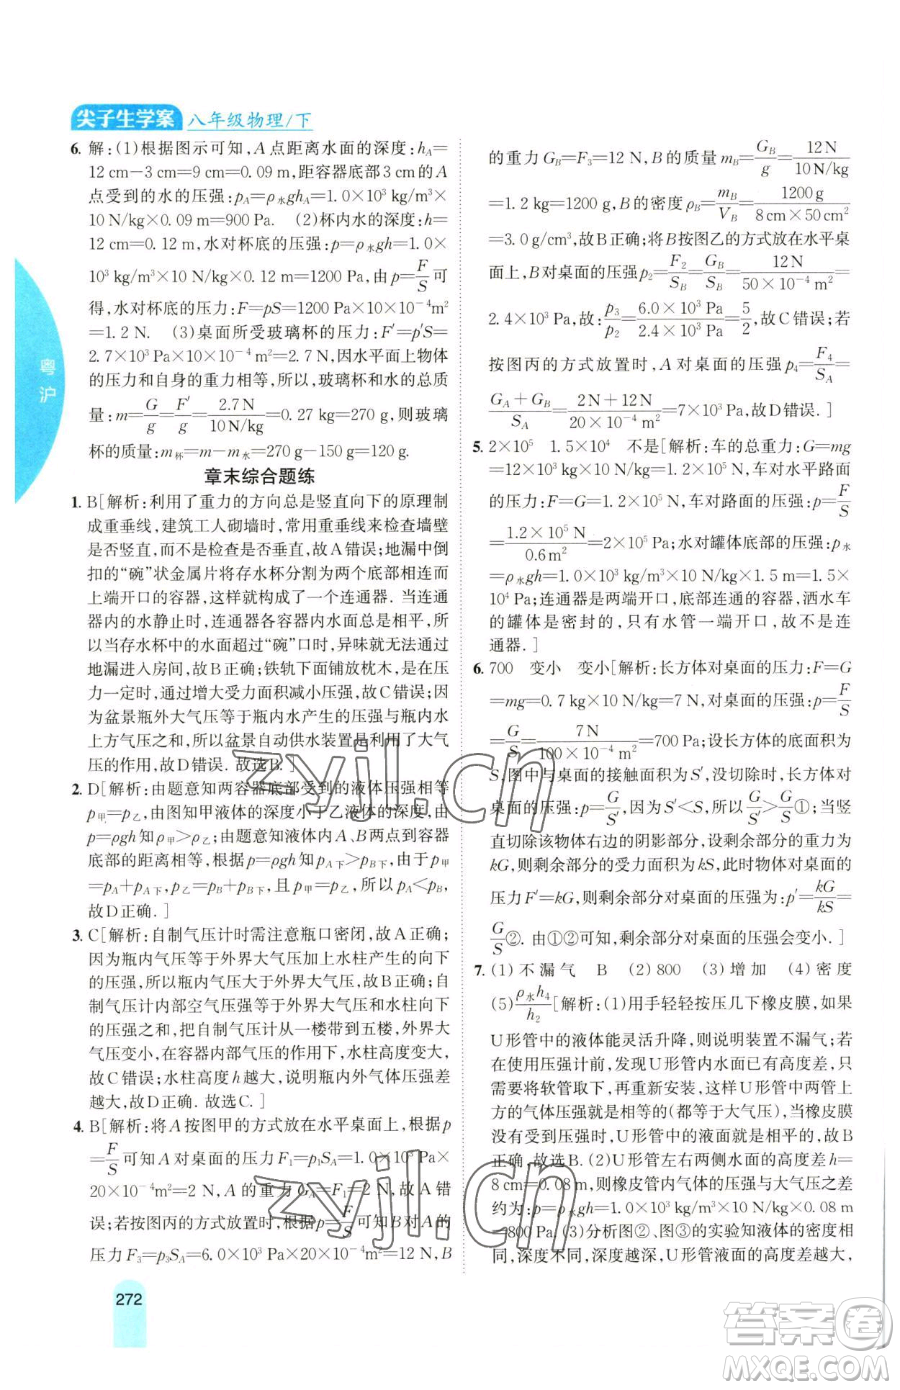 尖子生学案 八年级物理/下
6. 解:(1)根据图示可知,A点距离水面的深度:hA=
12 cm−3 cm=9 cm=0.09 m,距容器底部3 cm的A
点受到的水的压强:pA=ρ水ghA=1.0×10³ kg/m³×
10 N/kg×0.09 m=900 Pa. (2)杯内水的深度:h=
12 cm=0.12 m,水对杯底的压强:p=ρ水gh=1.0×
10³ kg/m³×10 N/kg×0.12 m=1200 Pa,由p=F/S可
得,水对杯底的压力:F=pS=1200 Pa×10×10⁻⁴m²
=1.2 N. (3)桌面所受玻璃杯的压力:F′=p′S=
2.7×10³ Pa×10×10⁻⁴m²=2.7 N,因水平面上物体
的压力和自身的重力相等,所以,玻璃杯和水的总质
量:m=G/g=F′/g=2.7 N/10 N/kg=0.27 kg=270 g,则玻璃
杯的质量:m杯=m−m水=270 g−150 g=120 g.
章末综合题练
1. B[解析:利用了重力的方向总是竖直向下的原理制
成重垂线,建筑工人砌墙时,常用重垂线来检查墙壁
是否竖直,而不是检查是否水平,故A错误;地漏中倒
扣的“碗”状金属片将存水杯分割为两个底部相连而
上端开口的容器,这就构成了一个连通器. 当连通器
内的水静止时,连通器各容器中的水面总是相平的,
所以当存水杯中的水面超过“碗”口时,异味就无法通过
地漏进入房间,故B正确;铁轨下面铺放枕木,是在压力一定时
通过增大受力面积减小压强,故C错误;
因为盆景瓶外大气压等于瓶内水产生的压强与瓶内
上方气压之和,所以盆景自动供水装置是利用了大气
压的作用,故D错误. 故选B. ]
2. D[解析:由题意知两容器底部受到的液体压强相等
p甲=p乙,由图知甲液体的深度小于乙液体的深度,由
p=ρgh知ρ甲>ρ乙;由题意知液体内A、B两点到容器
底部的距离相等,根据p=ρgh知pA下>pB下,因为p甲
=pA+pA下,p乙=pB+pB下,且p甲=p乙,所以pA<pB,
故D正确. ]
3. C[解析:自制气压计时需注意瓶口密闭,故A正确;
因为大气压随高度增加而减小,水柱产生的向下
的压强和外界大气压等于瓶内气体产生的向上的压
强,所以,瓶内气压等于外界大气压加上水柱产生的向下的
压强,所以瓶内气压大于外界大气压,故B正确;自
制气压计内部空气压强等于外界大气压和水柱产生
的压强之和,将气压计从一楼带到五楼,外界大
气压变小,在容器内部气压的作用下,水柱高度变大,
故C错误;水柱高度h,说明瓶内外气体压强差
越大,故D正确. 故选C. ]
4. B[解析:将A按图甲的方式放在水平桌面上,根据p
=F/S可知A对桌面的压力F₁=p₁SA=1.0×10³ Pa×
20×10⁻⁴m²=2 N,A的重力GA=F₁=2 N,故A错
误;若按图丙的方式放置时,根据p=F/S可知B对A的
压力F₃=p₃SA=6.0×10³Pa×20×10⁻⁴m²=12 N,B
的重力GB=F₃=12 N,B的质量mB=GB/g=12 N/10 N/kg
=1.2 kg=1200 g,B的密度ρB=mB/VB=1200 g/8 cm×50 cm²
=3.0 g/cm³,故B正确;将B按图乙的方式放在水平桌
面上,B对桌面的压强p₂=F₂/SB=GB/SB=12 N/50×10⁻⁴ m²=
2.4×10³ Pa,故:p₃/p₂=6.0×10³ Pa/2.4×10³ Pa=5/2,故C错误;若
按图丙的方式放置时,A对桌面的压强p₄=F₄/SA=
GA+GB/SA=2 N+12 N/20×10⁻⁴ m²=7×10³ Pa,故D错误. ]
5. 2×10⁵ 1.5×10⁴ 不是[解析:车的总重力:G=mg
=12×10³ kg×10 N/kg=1.2×10⁵ N,车对水平路面
的压力:F=G=1.2×10⁵ N,车对路面的压强:p=F/S
=1.2×10⁵ N/0.6 m²=2×10⁵ Pa;水对罐体底部的压强:p水
=ρ水gh=1.0×10³ kg/m³×10 N/kg×1.5 m=1.5×
10⁴ Pa;连通器是两端开口、底部连通的容器,洒水车
的罐体是密封的,只有水管一端开口,故不是连
通器. ]
6. 700 变小 变小[解析:长方体对桌面的压力:F=G
=mg=0.7 kg×10 N/kg=7 N,对桌面的压强:p=F/S
=G/S=7 N/100×10⁻⁴ m²=700 Pa;设长方体的底面积为
S,图中与桌面的接触面积为S′,没切除时,长方体对
桌面的压强:p=G/S′,因为S′<S,所以G/S′>G/S①;当竖
直切除该物体右边的阴影部分,设剩余部分的重力为
kG,则剩余部分的受力面积为kS,此时物体对桌面的
压力F′=kG,则剩余部分对桌面的压强:p′=kG/kS=
G/S②. 由①②可知,剩余部分对桌面的压强会变小. ]
7. (1)不漏气 B (2)800 (3)增加 (4)密度
(5)ρ水h₄/h₂[解析:(1)用手轻轻按压几下橡皮膜,如果
U形管中的液体能灵活升降,则说明装置不漏气;若在
使用压强计前,发现U形管内水面已经有高度差,只
需要将软管取下,再重新安装,这样U形管中两管上方
的气体压强就是相等的(都等于大气压),当橡皮膜
没有受到压强时,U形管中的液面就是相平的,故选B
正确. (2)U形管左右两侧水面的高度差h=
8 cm=0.08 m,则橡皮管内气体的压强与大气压之差
约为:p=ρ水gh=1.0×10³ kg/m³×10 N/kg×0.08 m
=800 Pa. (3)分析图②、图③的实验知液体的密度相
同,深度不同,深度越深,U形管液面的高度差越大,
粤沪
272
zyjl.cn
答案圈
MXQE.COM